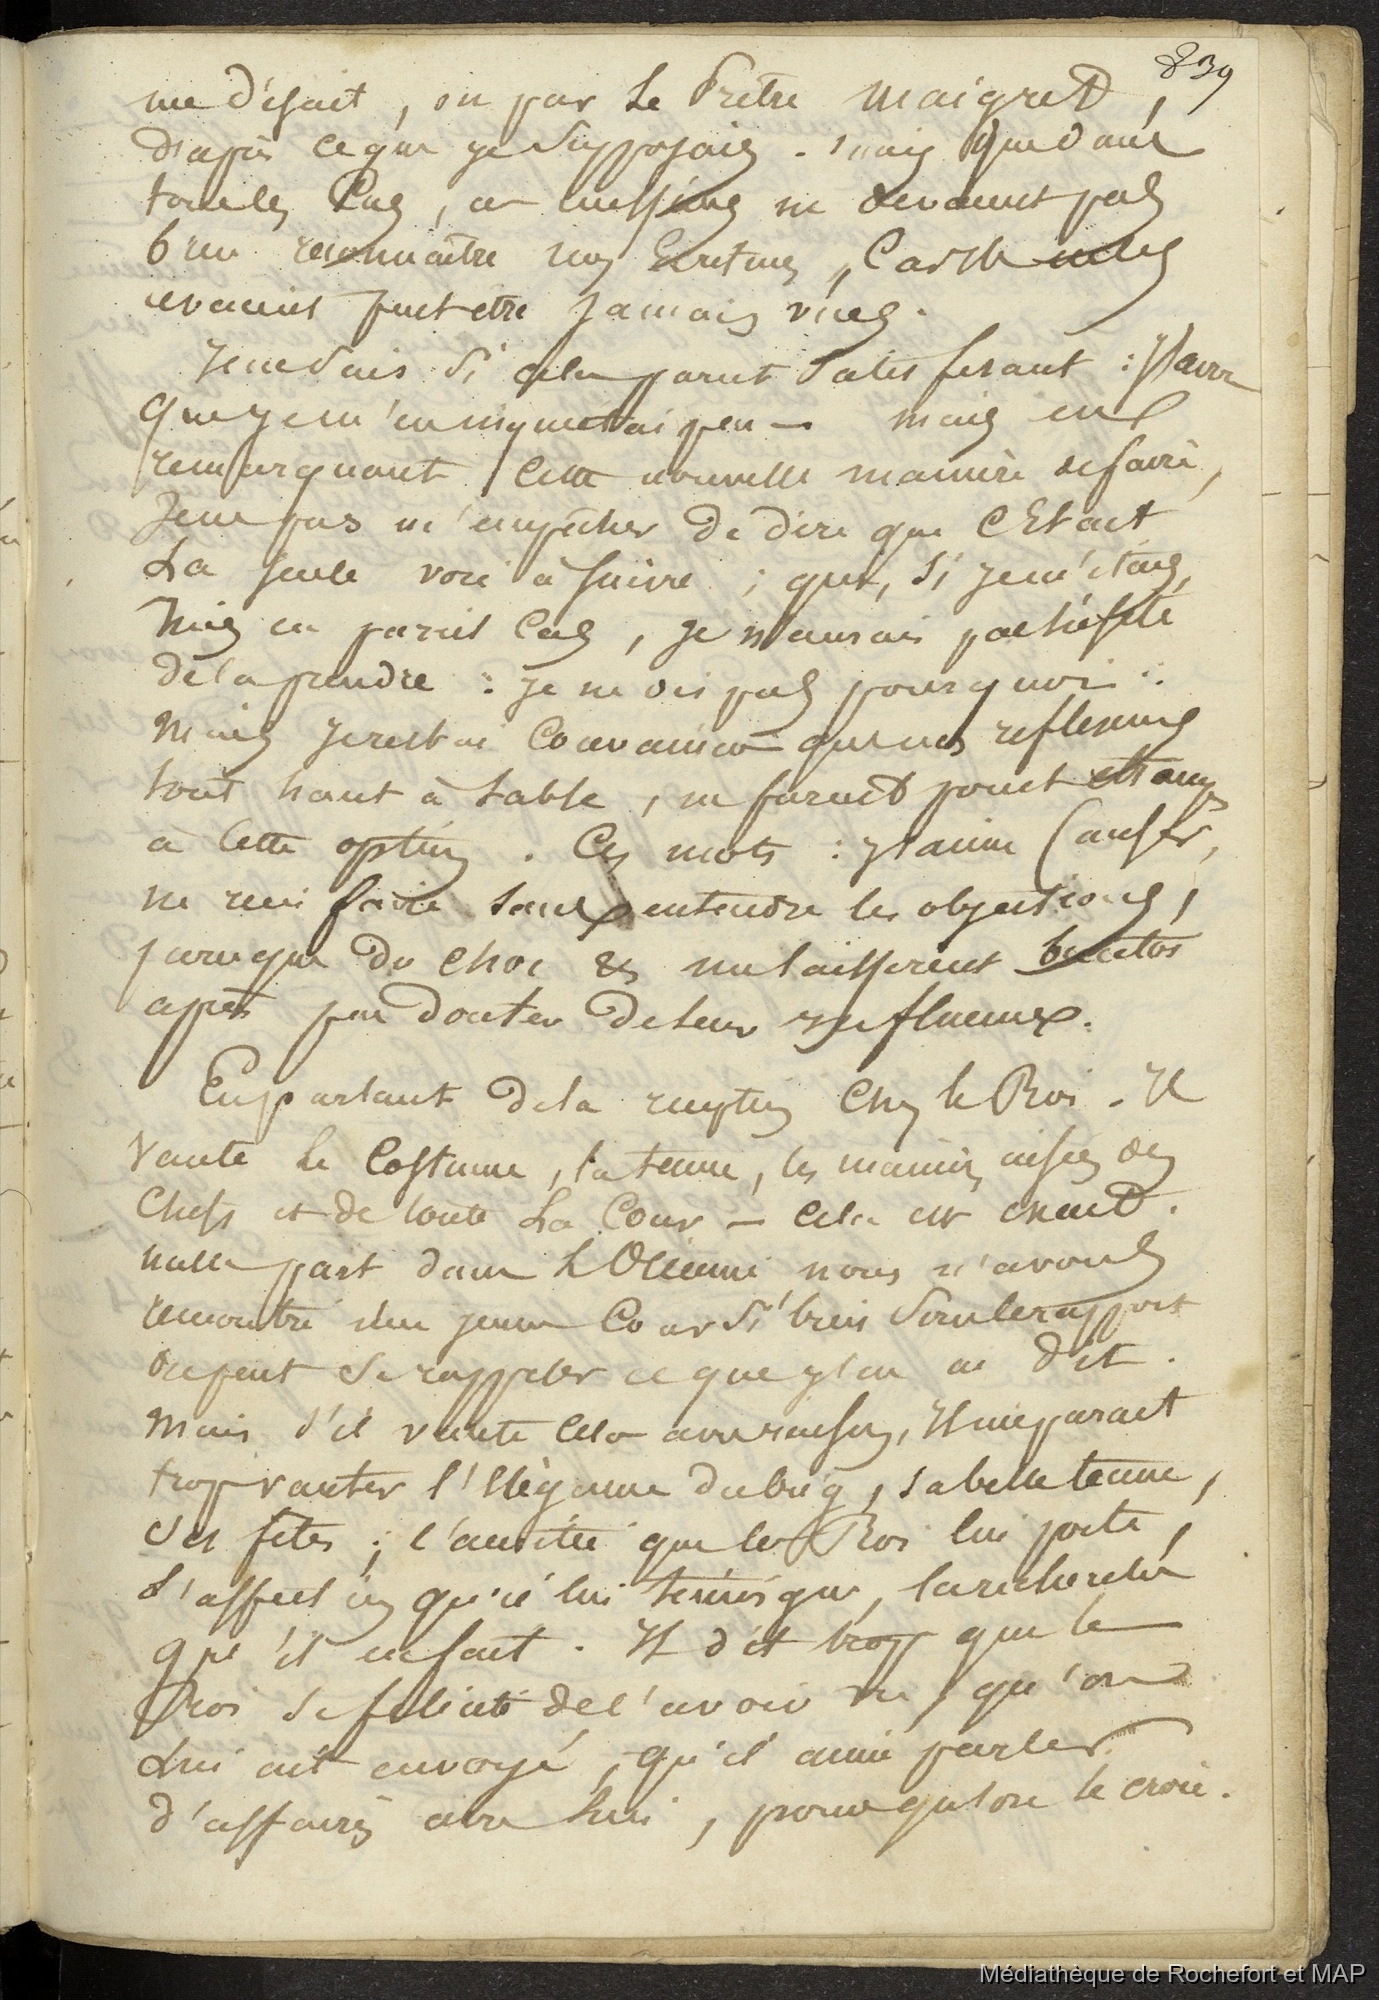 839
me disait, ou par le Prêtre Maigret,
d'après ce que je supposais. mais que dans
tous les Cas, ces messieurs ne devaient pas
bien reconnaitre nos Ecritures, Car ils ne les
avaient peut etre jamais vues.
Je ne sais si cela parut satisfesant : J'avoue
que je m'en inquietai peu — mais en
remarquant cette nouvelle manière de faire,
Je ne pus m'empêcher de dire que C'Etait
La seule voie à suivre ; que, si je m'étais
mis en pareil Cas, je n'aurais pas hésité
de la prendre : je ne dis pas pourquoi :
Mais je restai Convaincu que mes reflexions
tout haut à table, ne furent point etrangères
à Cette option. Ces mots : J'aime Causer,
ne rien faire sans entendre les objections,
parce que du choc &c me laisserent bientos
après peu douter de leur influence.
En parlant de la reception Chez le Roi. Il
Vante le Costume, la tenue, les manières aisées des
Chefs et de toute La Cour — Cela est exact.
nulle part dans L'Océanie nous n'avons
rencontré une jeune Cour si bien sous le rapport
on peut se rappeler ce que j'en ai dit.
Mais s'il vante Cela avec raison, Il me parait
trop vanter l'Elégance du brig, sa belle tenue,
Ses fêtes ; l'amitié que le Roi lui porte,
L'affection qu'il lui témoigne, la recherche
qu'il en fait. Il dit trop que le
Roi se felicite de l'avoir vu, qu'on
Lui ait envoyé, qu'il aime parler
d'affaires avec lui, pour qu'on le croie.
Médiathèque de Rochefort et MAP